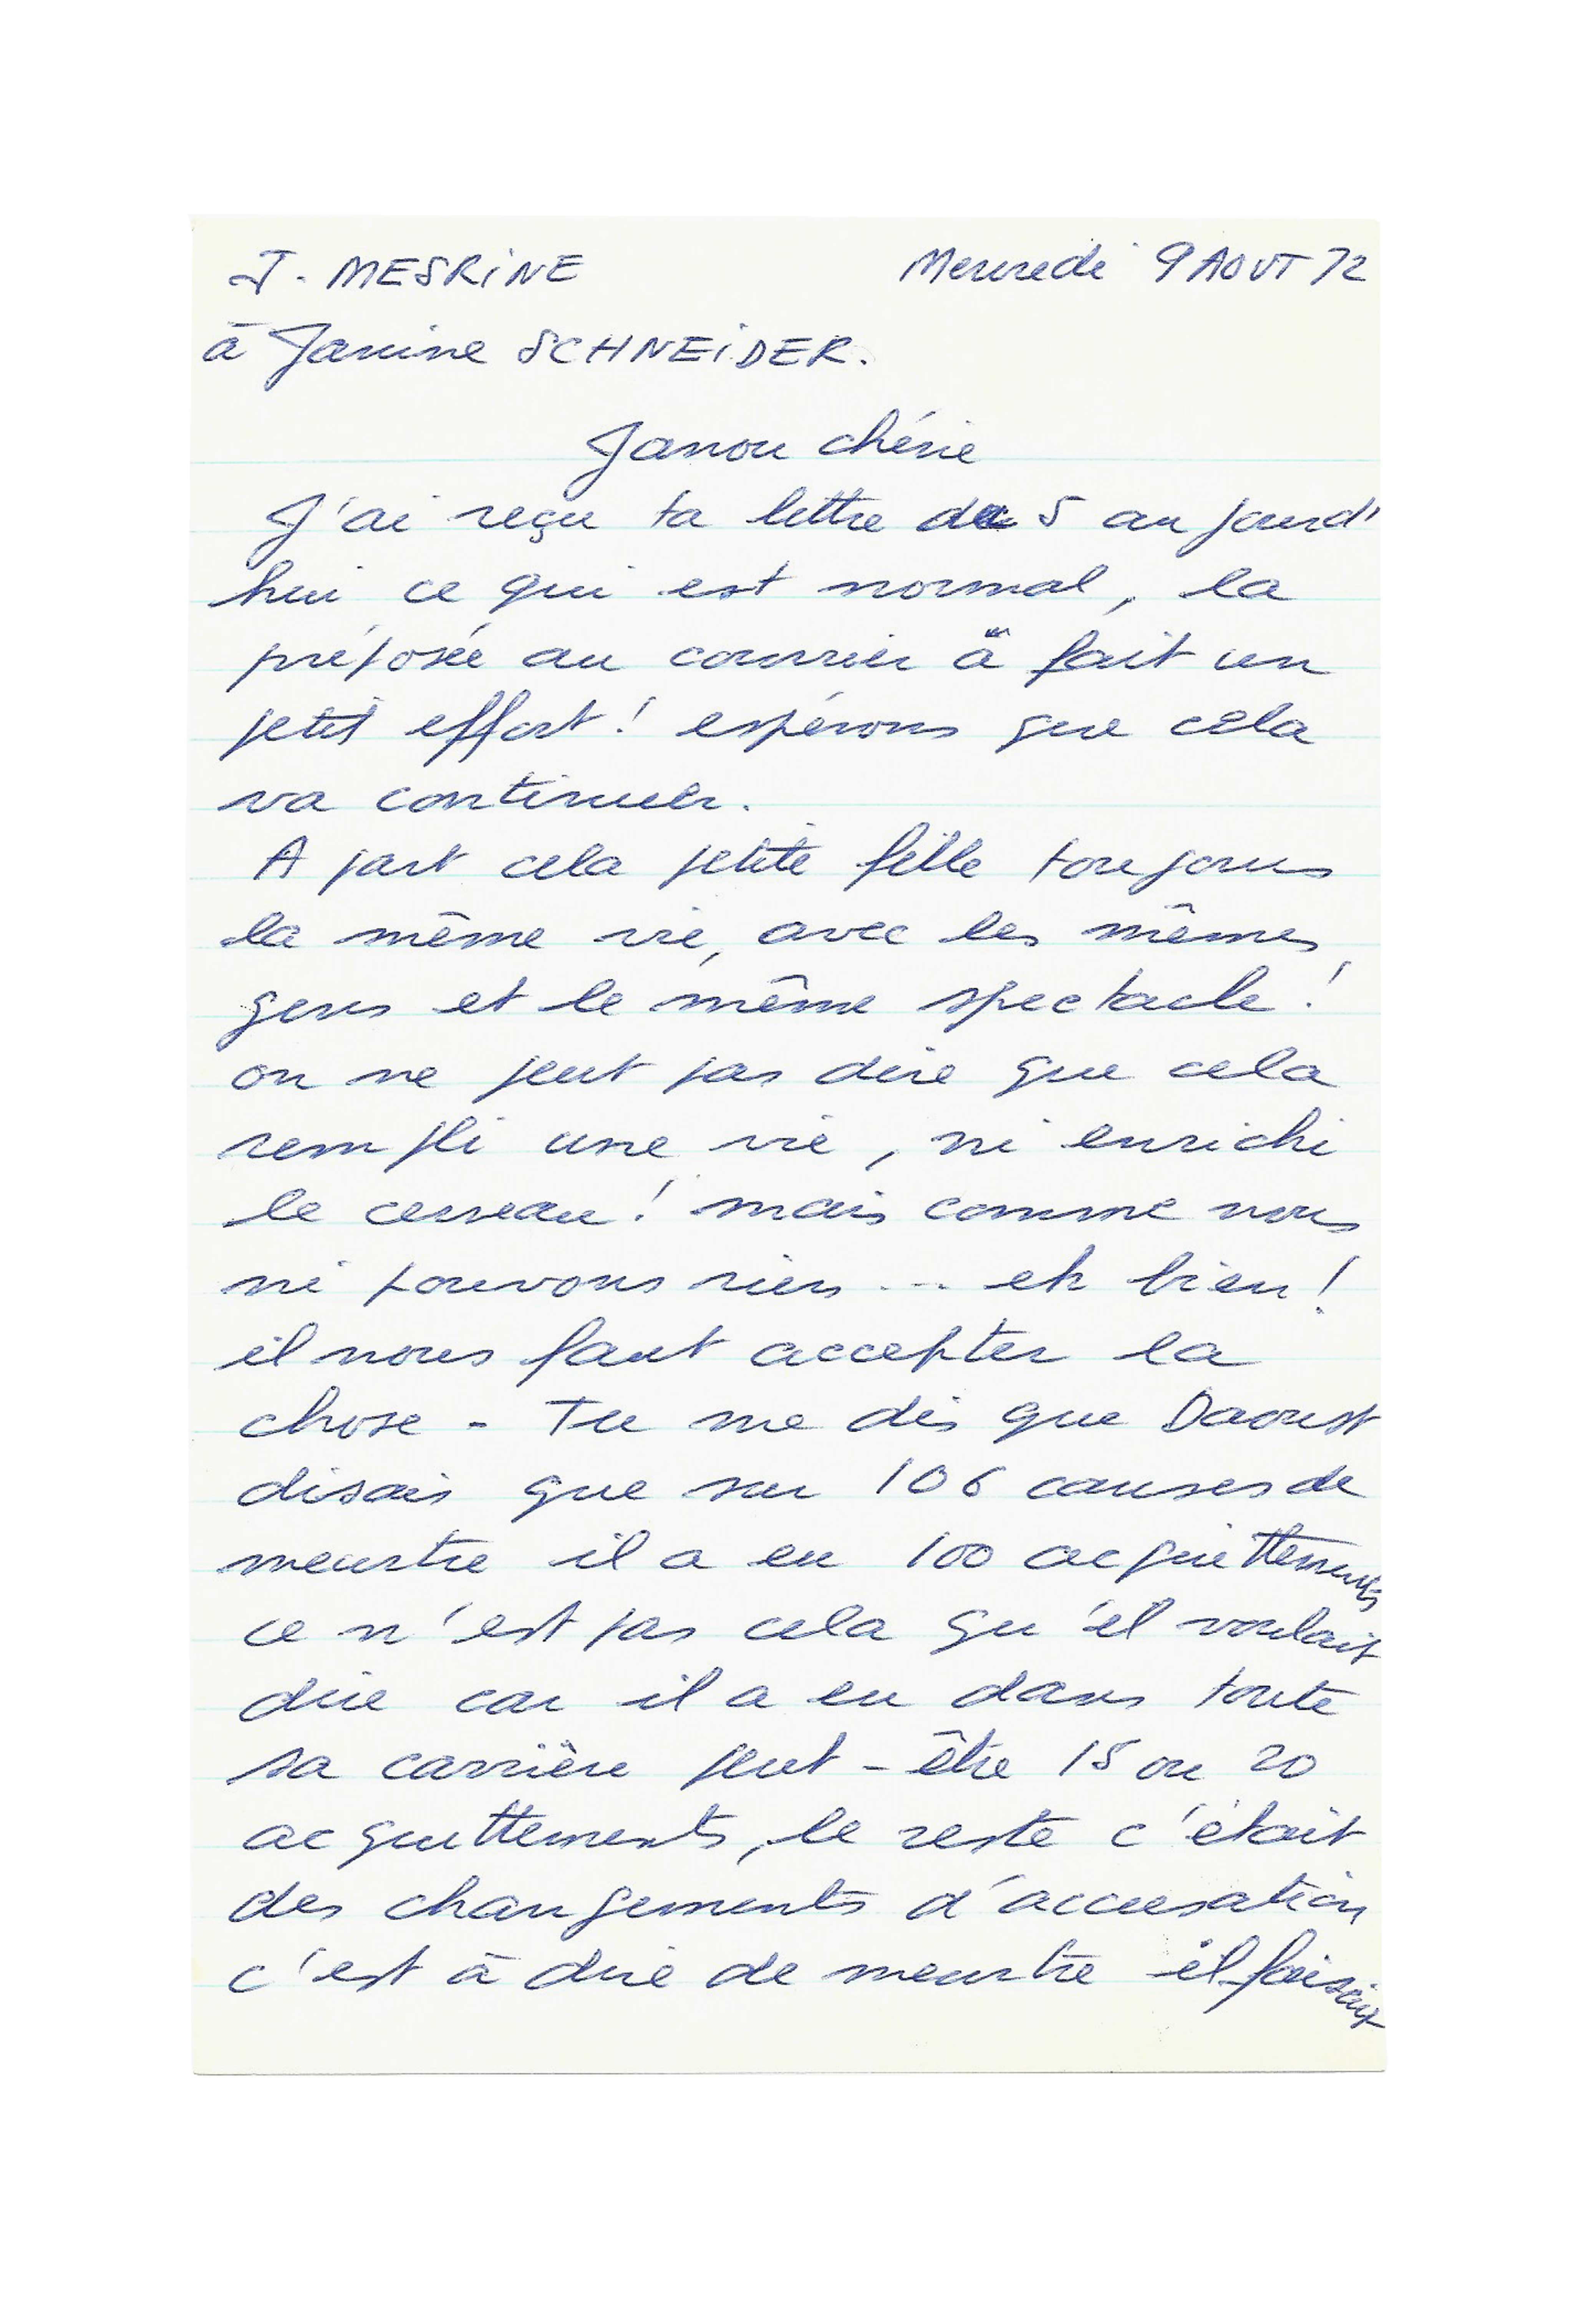 J. MESRINE Mercredi 9 AOUT 72
à Janine SCHNEIDER.
Janou chérie
J'ai reçu ta lettre du 5 aujourd'
hui ce qui est normal, la
préposée au courrier à fait un
petit effort! espérons que cela
va continuer.
A part cela petite fille toujours
la même vie, avec les mêmes
gens et le même spectacle!
on ne peut pas dire que cela
rempli une vie, ni enrichi
le cerveau! mais comme nous
ni pouvons rien... eh bien!
il nous faut accepter la
chose - Tu me dis que Daoust
disais que sur 106 causes de
meurtre il a eu 100 acquittements
ce n'est pas cela qu'il voulait
dire car il a eu dans toute
sa carrière peut-être 15 ou 20
acquittements, le reste c'était
des changements d'accusation
c'est à dire de meurtre il faisait